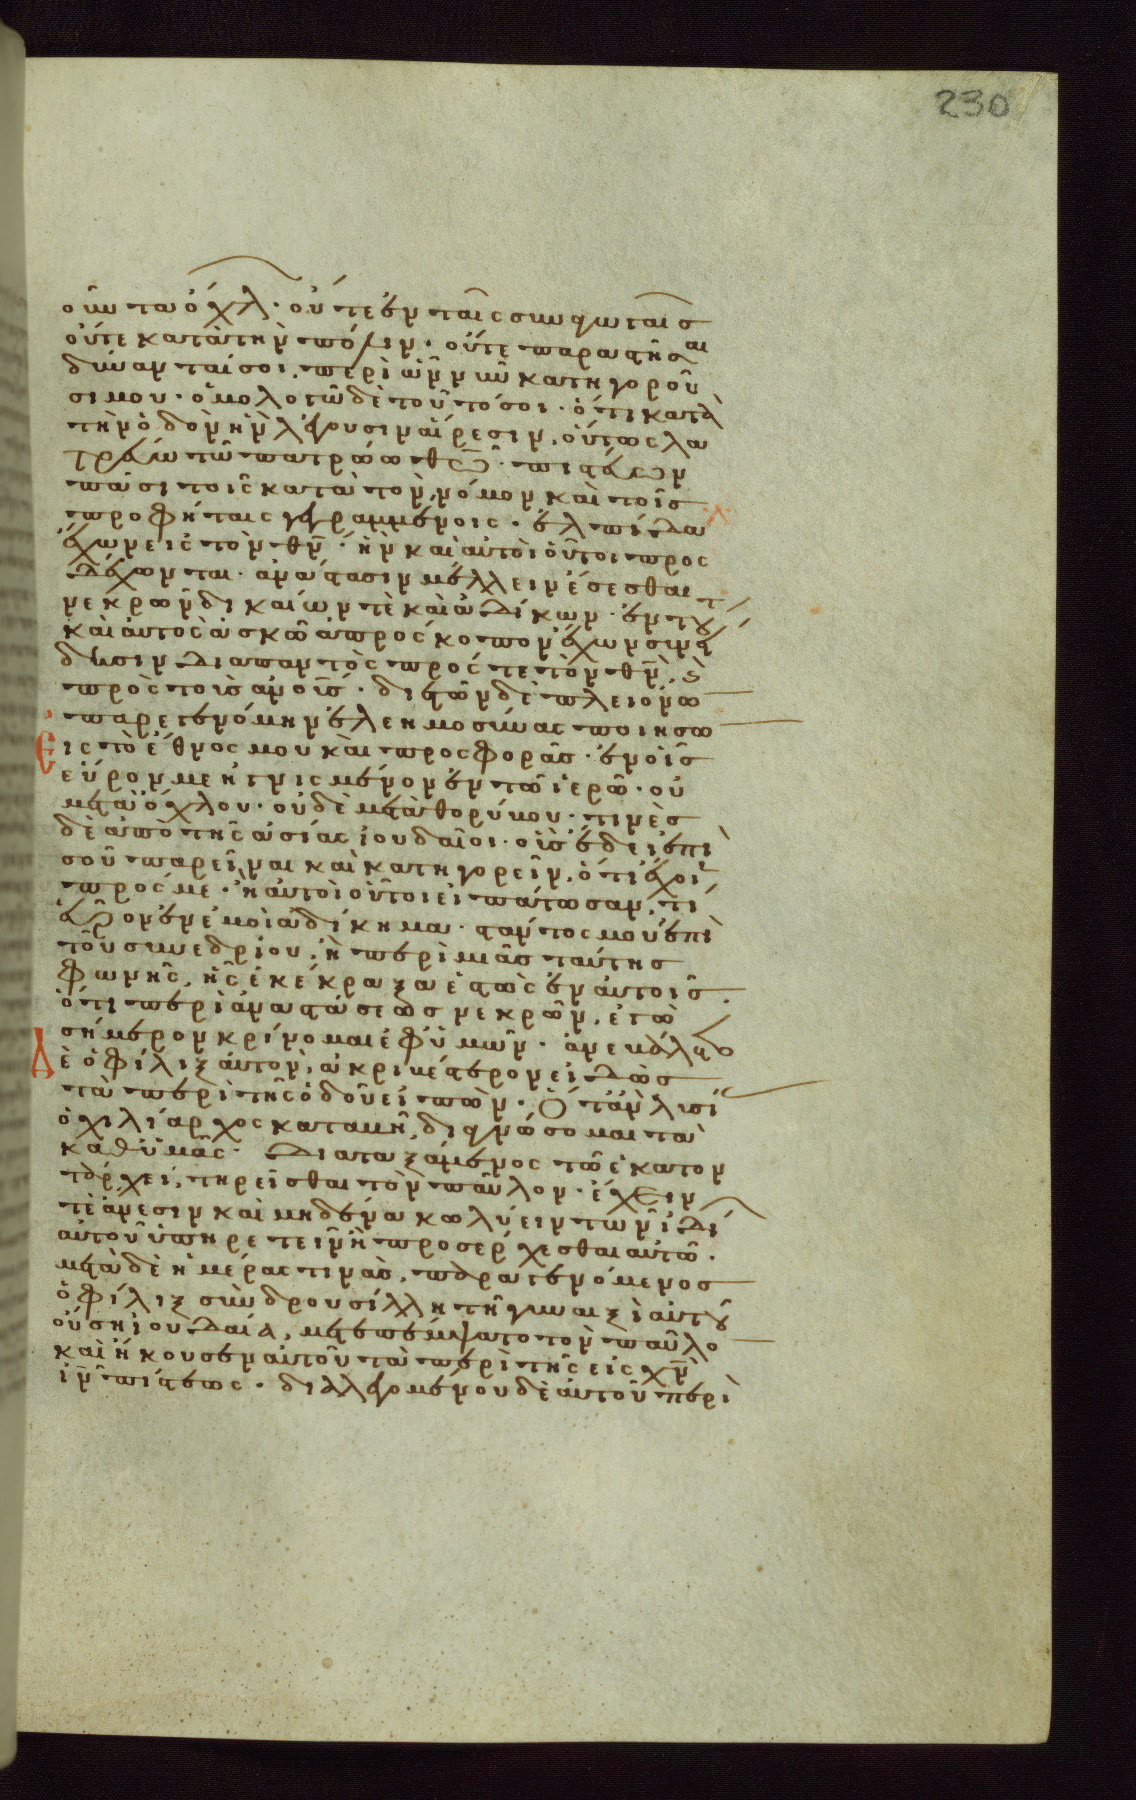 οῦντα ὄχλ· οὔτε ἐν ταῖς συναγωγαῖς
οὔτε κατὰ τὴν πόλιν· οὔτε παραστῆσαι
δύνανταί σοι. περὶ ὧν νῦν κατηγοροῦ
σι μου· ὁμολογῶ δὲ τοῦτό σοι· ὅτι κατὰ
τὴν ὁδὸν ἣν λέγουσιν αἵρεσιν, οὕτως λα
τρεύω τῶ πατρώω θῶ· πιστεύων
πᾶσι τοῖς κατὰ τὸν νόμον καὶ τοῖς
προφήταις γεγραμμένοις· ἐλπίδα
ἔχων εἰς τὸν θν· ἣν καὶ αὐτοὶ οὗτοι προσ
δέχονται· ἀνάστασιν μέλλειν ἔσεσθαι
νεκρῶν δικαίων τὲ καὶ ἀδίκων· ἐν τού
καὶ αὐτὸς ἀσκῶ ἀπρόσκοπον ἔχων συνεί
δησιν διαπαντὸς πρός τε τὸν θν, καὶ
πρὸς τοὺς ἀνους· δι ἐτῶν δὲ πλειόνω
παρεγενόμην ἐλεημοσύνας ποιήσω
εἰς τὸ ἔθνος μου καὶ προσφοράς· ἐν οἷς
εὗρόν με ἡγνισμένον ἐν τῶ ἱερῶ· οὐ
μετὰ ὄχλου· οὐδὲ μετὰ θορύβου· τινὲς
δὲ ἀπὸ τῆς ἀσίας ἰουδαῖοι· οὓς ἔδει ἐπὶ
σοῦ παρεῖναι καὶ κατηγορεῖν, ὅτι ἔχοι
πρός με· ἢ αὐτοὶ οὗτοι εἰπάτωσαν, τί
εὗρον ἐν ἐμοὶ ἀδίκημα· στάντος μου ἐπὶ
τοῦ συνεδρίου, ἢ περὶ μιᾶς ταύτης
φωνῆς, ἧς ἐκέκραξα ἑστὼς ἐν αὐτοῖς
ὅτι περὶ ἀναστάσεως νεκρῶν, ἐγὼ
σήμερον κρίνομαι ἐφ ὑμῶν· ἀνεβάλετο
δὲ ὁ φίλιξ αὐτόν, ἀκριβέστερον εἰδὼς
τὰ περὶ τῆς ὁδοῦ εἰπών· ὅταν λυσί
ὁ χιλίαρχος καταβῆ, διαγνώσομαι τὰ
καθ ὑμᾶς· διαταξάμενος τῶ ἑκατον
τάρχει, τηρεῖσθαι τὸν παῦλον· ἔχειν
τὲ ἄνεσιν καὶ μηδένα κωλύειν τῶν ἰδί
αὐτοῦ ὑπηρετεῖν ἢ προσέρχεσθαι αὐτῶ.
μετὰ δὲ ἡμέρας τινὰς, παραγενόμενος
ὁ φίλιξ σὺν δρουσίλλη τῆ γυναιξὶ αὐτοῦ
οὔση ἰουδαία, μετεπέμψατο τὸν παῦλο
καὶ ἤκουσεν αὐτοῦ τὰ περὶ τῆς εἰς χν
ιν πίστεως· διαλεγομένου δὲ αὐτοῦ περὶ
230